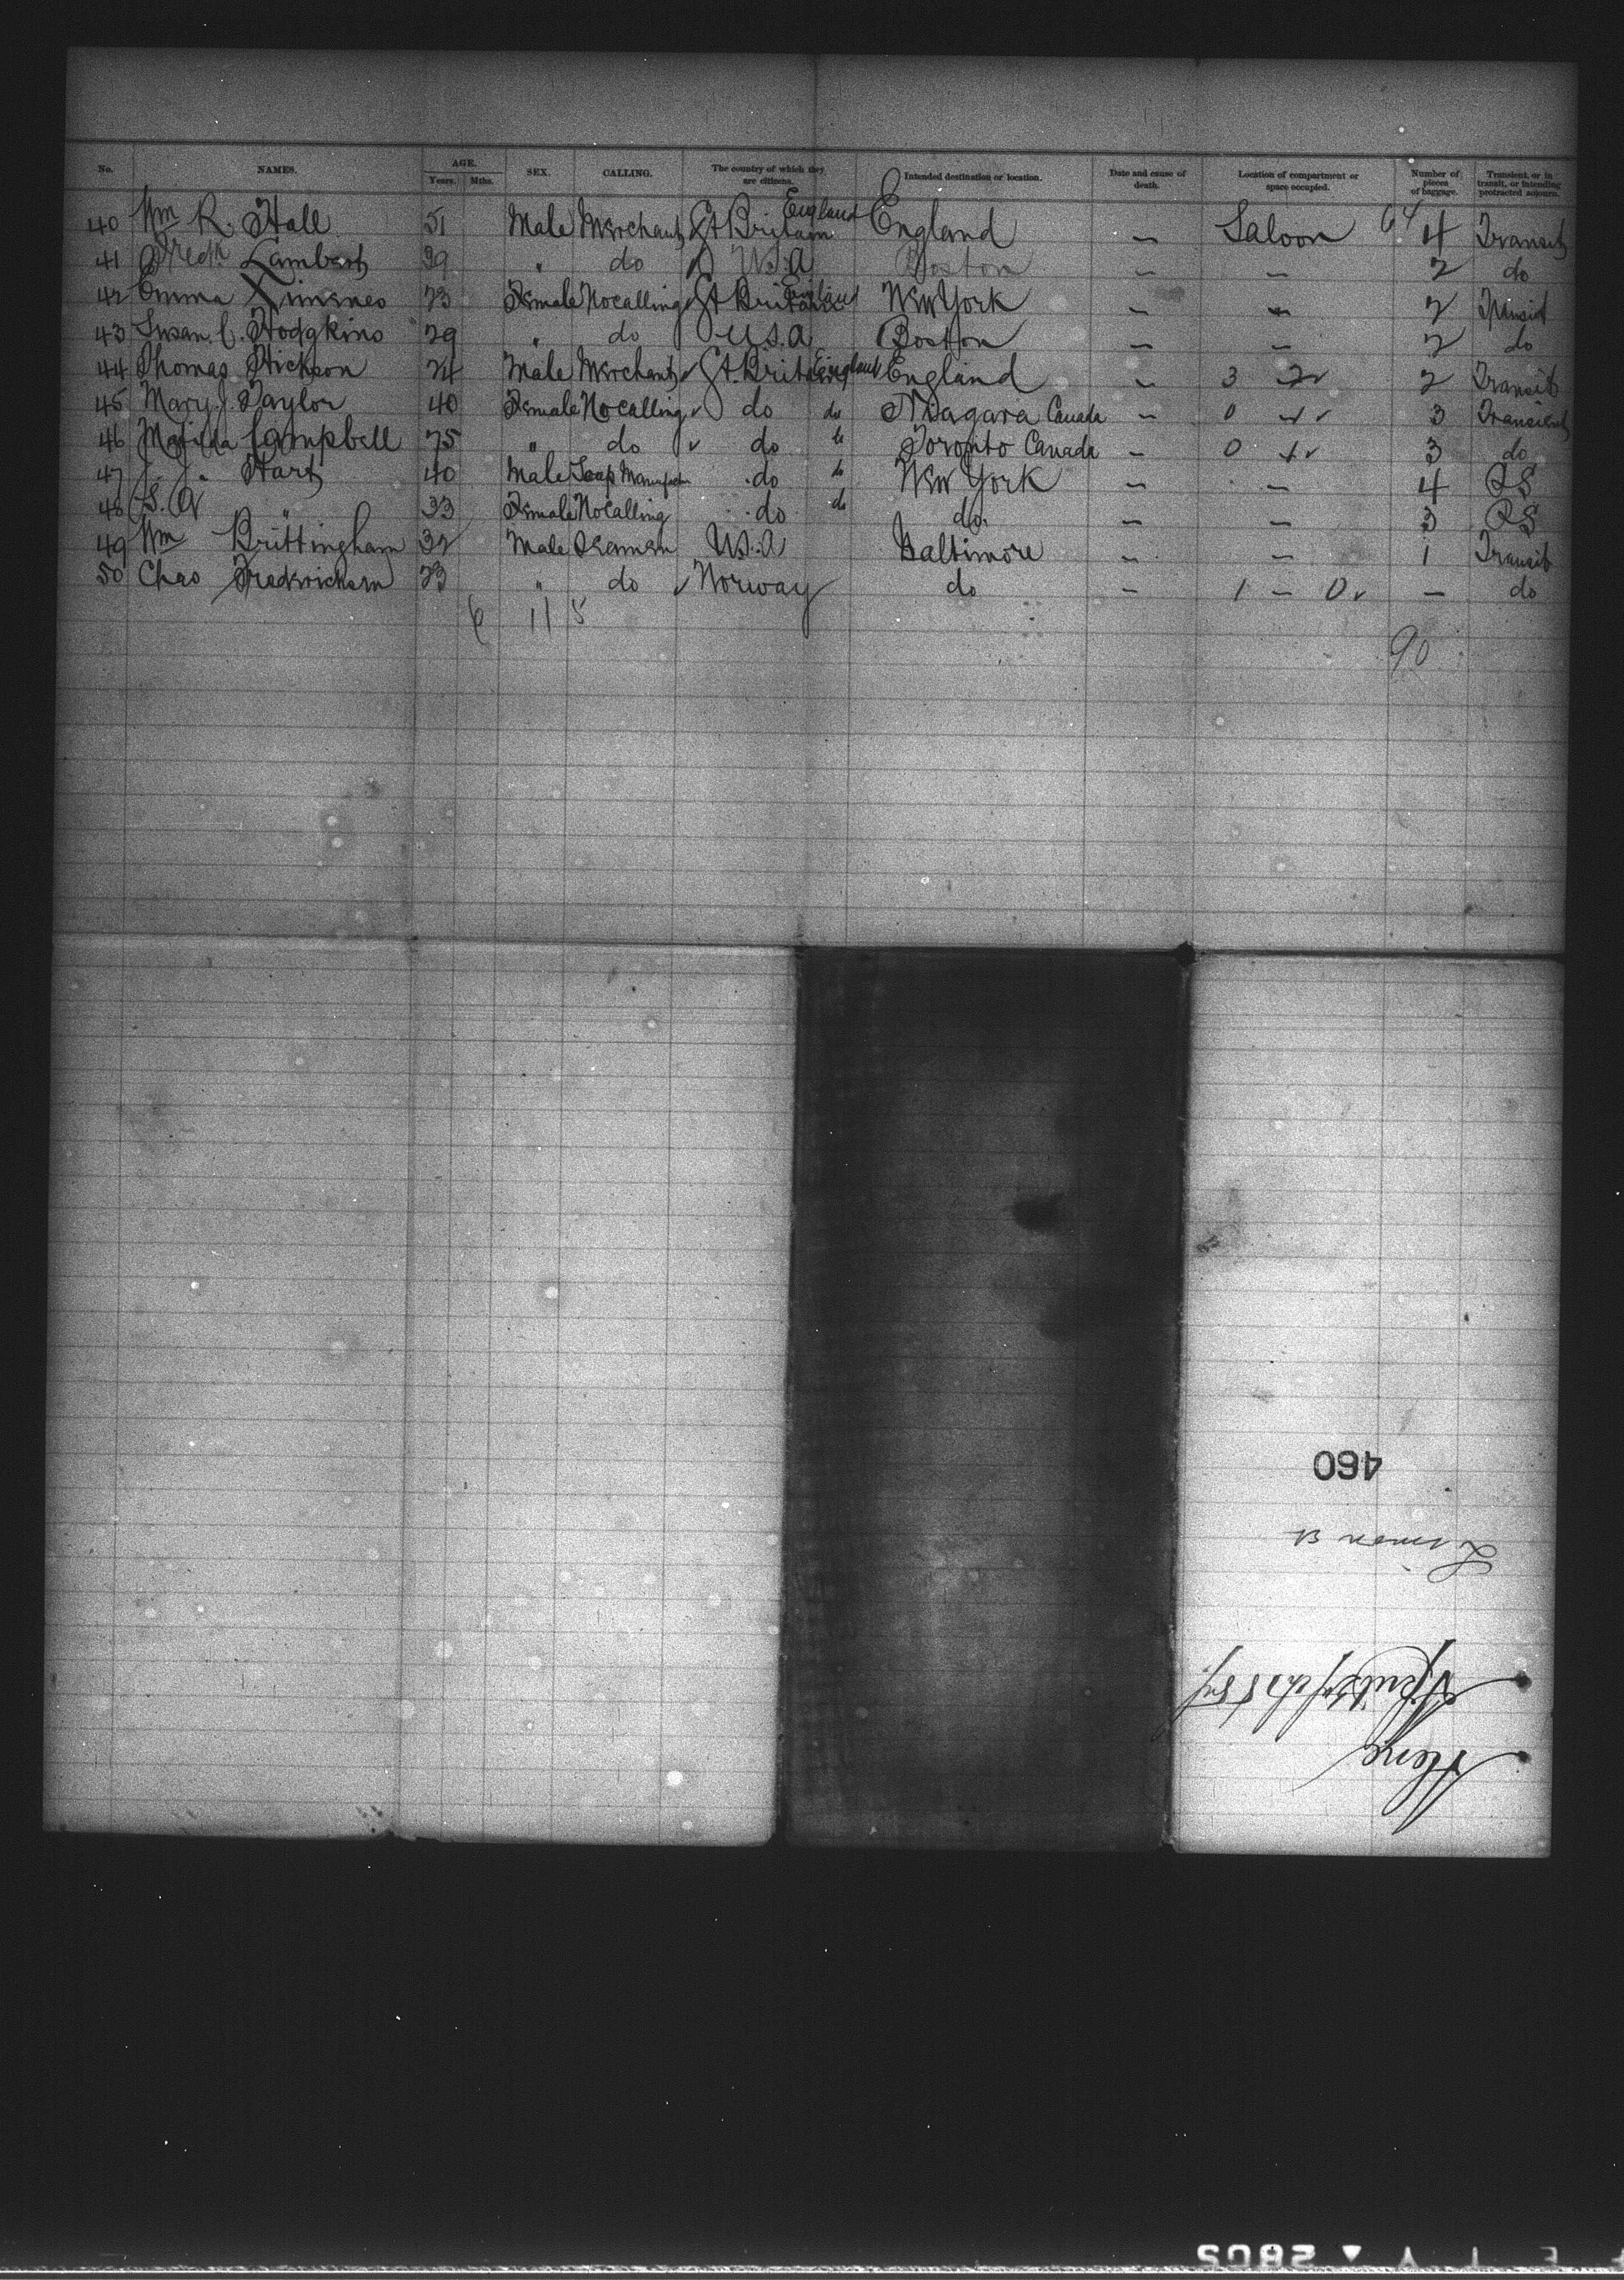 No. NAMES. AGE. Years. Mths. SEX. CALLING. The country of which they are citizens. Intended destination or location. Date and cause of death. Location of compartment or space occupied. Number of pieces of baggage. Transient, or in transit, or intending protracted sojourn.
40 Wm R. Hall 51 Male Merchant Gt Britain England England — Saloon 64 4 Transit
41 Fredk Lambert 39 " do U.S.A Boston — — 2 do
42 Emma 23 Female No calling Gt Britain England New York — — 2 Transit
43 Susan C. Hodgkins 29 " do U.S.A Boston — — 2 do
44 Thomas Hickson 24 Male Merchant Gt. Britain England England — 3 2 2 Transit
45 Mary J. Taylor 40 Female No calling do do Niagara Canada — 0 3 Transient
46 Matilda Campbell 75 " do do do Toronto Canada — 0 3 do
47 J. J. Hart 40 Male Soap Manufactr do do New York — — 4 PS
48 S. A " 33 Female No calling do do do — — 3 PS
49 Wm Brittingham 32 Male Seaman U.S.A Baltimore — — 1 Transit
50 Chas Fredricksen 23 " do Norway do — 1 — 0 — do
6 11 5
90
460